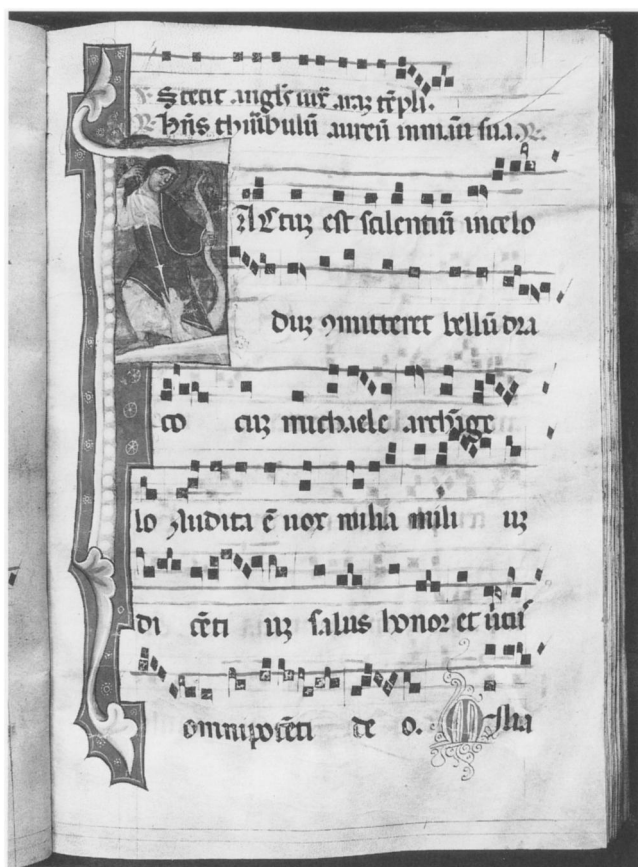 ℣. Stetit angl's iux̄ araz tēpli.
℟. Hn̄s thuībulū aureū in manu sua. ℟.
FActuz est silentiuʒ in celo
duʒ ɔmitteret bellū dra
co cuʒ michaele archāge
lo ɔ̃ludita ē uox milia mili uʒ
di cēti uʒ salus honor et uirtꝰ
omnipotēti de o. Milia